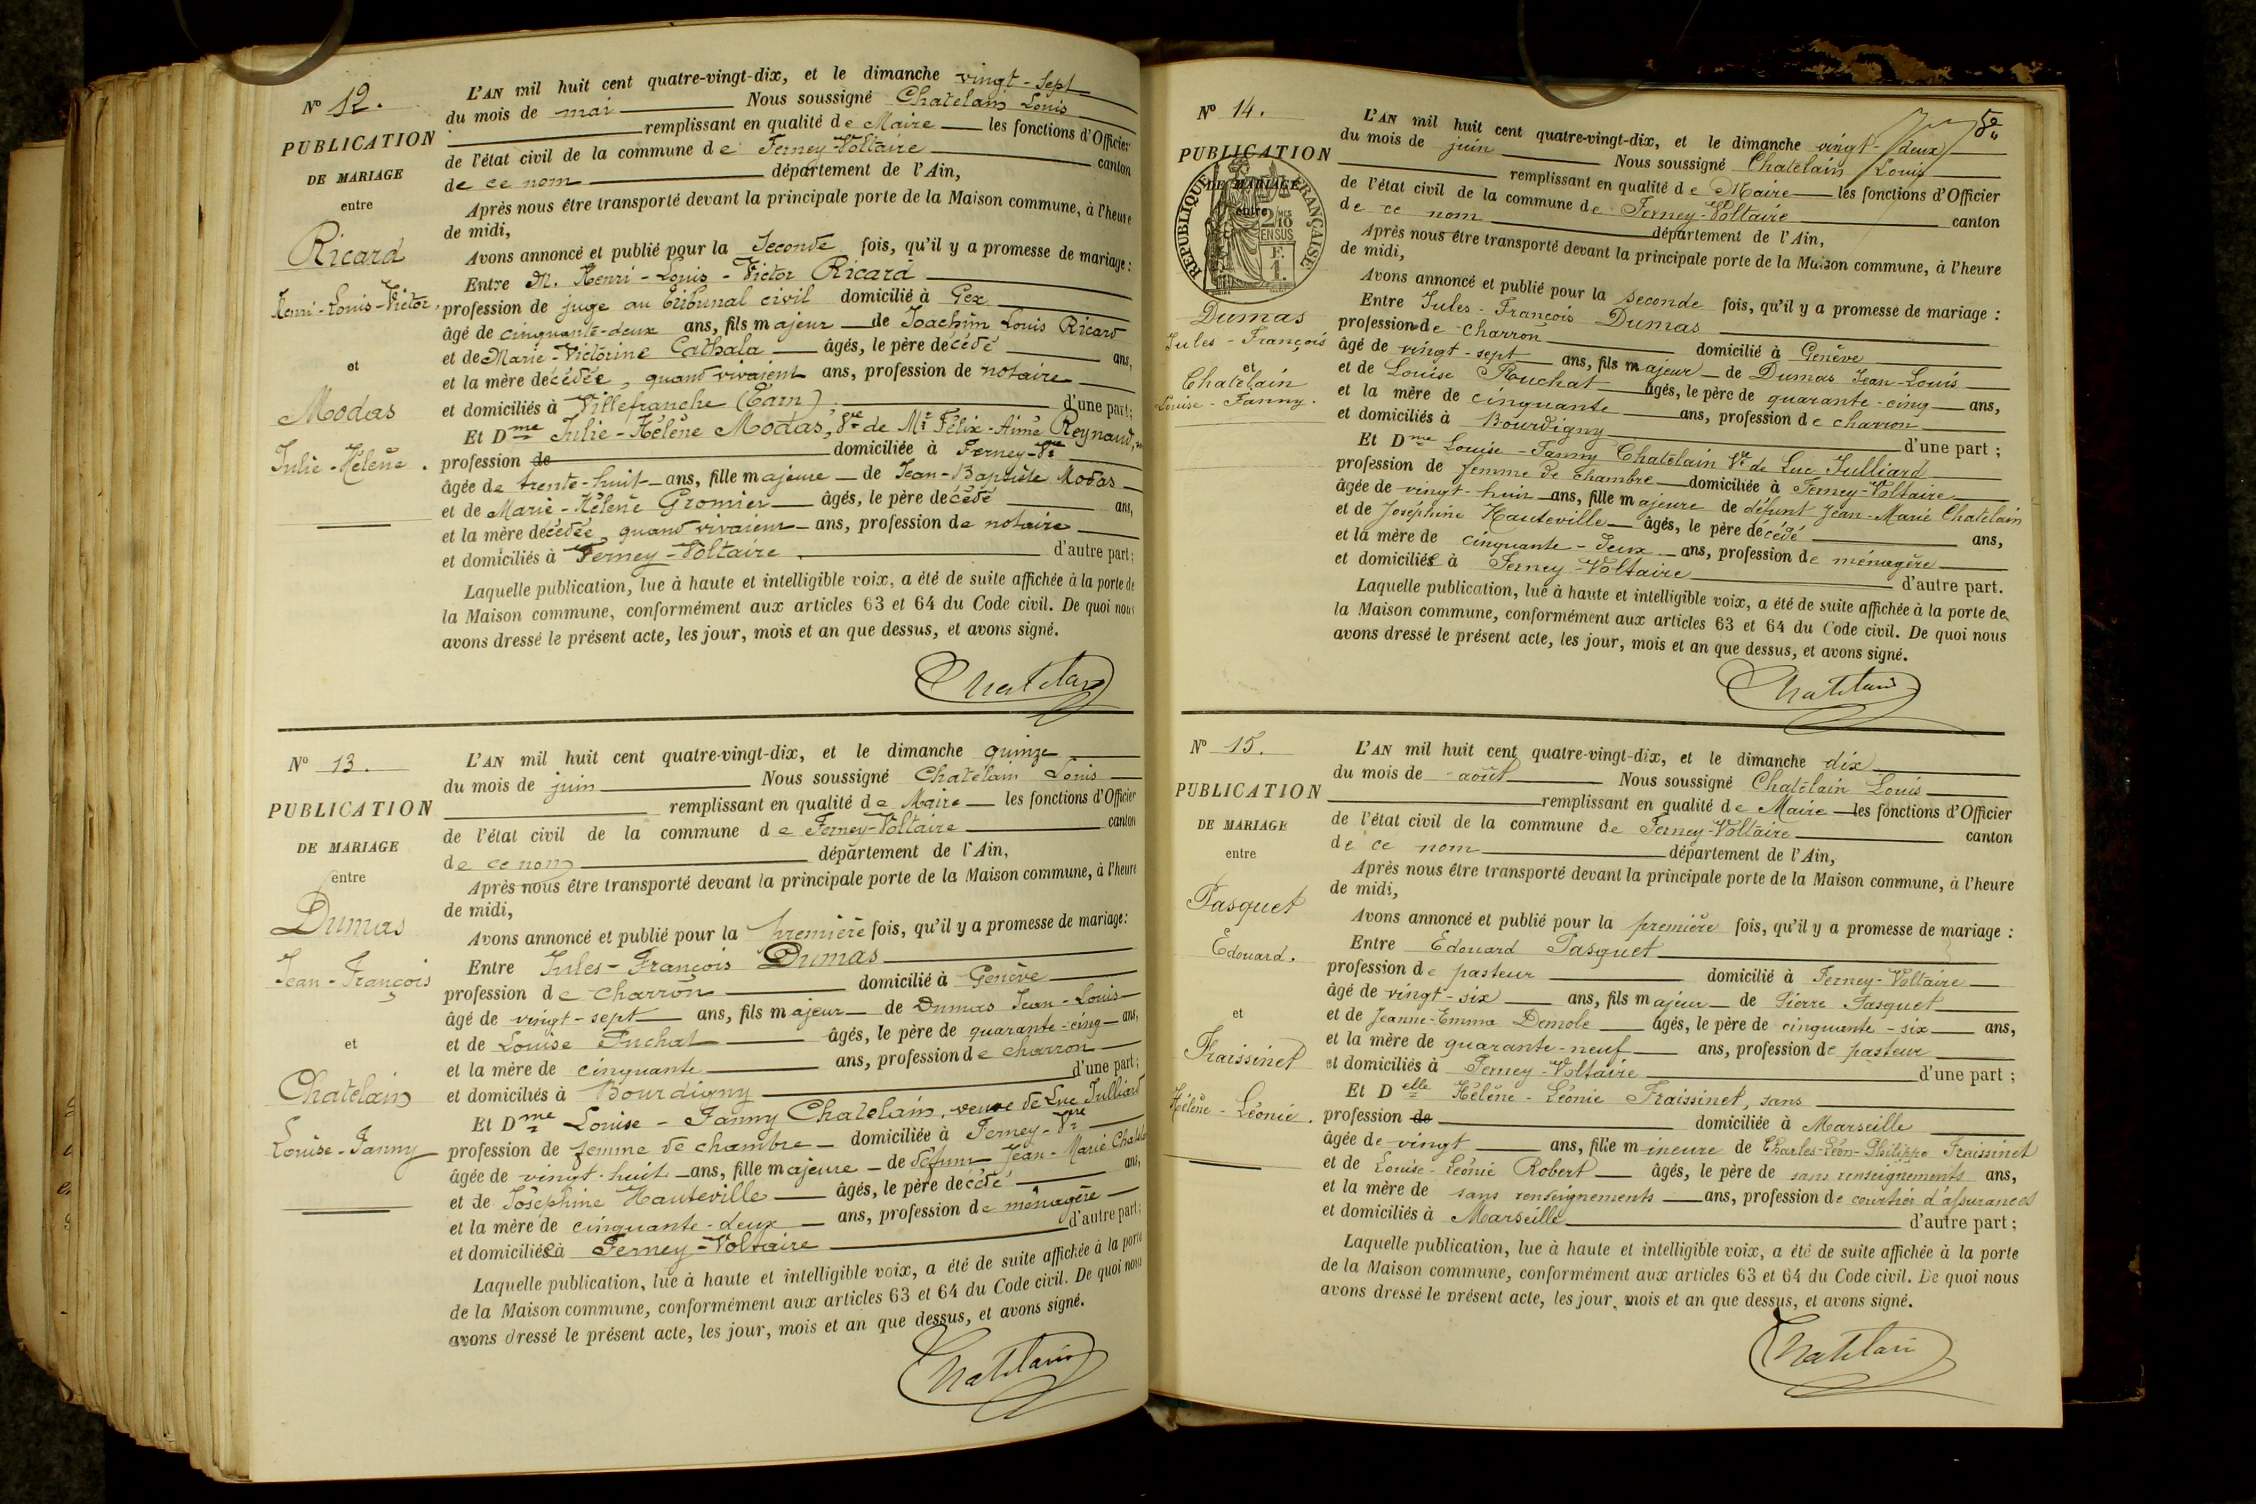 Nº 12.
PUBLICATION
DE MARIAGE
entre
Ricard
Henri-Louis-Victor,
et
Modas
Julie-Hélène.
L'AN mil huit cent quatre-vingt-dix, et le dimanche vingt-sept
du mois de mai Nous soussigné Chatelain Louis
remplissant en qualité de Maire les fonctions d'Officier
de l'état civil de la commune de Ferney-Voltaire canton
de ce nom département de l'Ain,
Après nous être transporté devant la principale porte de la Maison commune, à l'heure
de midi,
Avons annoncé et publié pour la seconde fois, qu'il y a promesse de mariage :
Entre M. Henri-Louis-Victor Ricard
profession de juge au tribunal civil domicilié à Gex
âgé de cinquante-deux ans, fils majeur de Joachim Louis Ricard
et de Marie-Victorine Cathala âgés, le père décédé ans,
et la mère décédée, quand vivaient ans, profession de notaire
et domiciliés à Villefranche (Tarn) d'une part;
Et Dme Julie-Hélène Modas, Vve de Mr Félix-Aimé Reynaud,
profession de domiciliée à Ferney-Vre
âgée de trente-huit ans, fille majeure de Jean-Baptiste Modas
et de Marie-Hélène Gromier âgés, le père décédé ans,
et la mère décédée, quand vivaient ans, profession de notaire
et domiciliés à Ferney-Voltaire. d'autre part;
Laquelle publication, lue à haute et intelligible voix, a été de suite affichée à la porte de
la Maison commune, conformément aux articles 63 et 64 du Code civil. De quoi nous
avons dressé le présent acte, les jour, mois et an que dessus, et avons signé.
Chatelain
Nº 13.
PUBLICATION
DE MARIAGE
entre
Dumas
Jean-François
et
Chatelain
Louise-Fanny
L'AN mil huit cent quatre-vingt-dix, et le dimanche quinze
du mois de juin Nous soussigné Chatelain Louis
remplissant en qualité de Maire les fonctions d'Officier
de l'état civil de la commune de Ferney-Voltaire canton
de ce nom département de l'Ain,
Après nous être transporté devant la principale porte de la Maison commune, à l'heure
de midi,
Avons annoncé et publié pour la première fois, qu'il y a promesse de mariage:
Entre Jules-François Dumas
profession de charron domicilié à Genève
âgé de vingt-sept ans, fils majeur de Dumas Jean-Louis
et de Louise Puchat âgés, le père de quarante-cinq ans,
et la mère de cinquante ans, profession de charron
et domiciliés à Bourdigny d'une part;
Et Dme Louise-Fanny Chatelain, veuve de Luc Julliard
profession de femme de chambre domiciliée à Ferney-Vre
âgée de vingt-huit ans, fille majeure de défunt Jean-Marie Chatelain
et de Joséphine Hauteville âgés, le père décédé ans,
et la mère de cinquante-deux ans, profession de ménagère
et domiciliée à Ferney-Voltaire d'autre part;
Laquelle publication, lue à haute et intelligible voix, a été de suite affichée à la porte
de la Maison commune, conformément aux articles 63 et 64 du Code civil. De quoi nous
avons dressé le présent acte, les jour, mois et an que dessus, et avons signé.
Chatelain
Nº 14.
PUBLICATION
DE MARIAGE
entre
RÉPUBLIQUE FRANÇAISE
2/10 EN SUS
F. 1.
Dumas
Jules-François
et
Chatelain
Louise-Fanny.
5e
L'AN mil huit cent quatre-vingt-dix, et le dimanche vingt-deux
du mois de juin Nous soussigné Chatelain Louis
remplissant en qualité de Maire les fonctions d'Officier
de l'état civil de la commune de Ferney-Voltaire canton
de ce nom département de l'Ain,
Après nous être transporté devant la principale porte de la Maison commune, à l'heure
de midi,
Avons annoncé et publié pour la seconde fois, qu'il y a promesse de mariage :
Entre Jules-François Dumas
profession de charron domicilié à Genève
âgé de vingt-sept ans, fils majeur de Dumas Jean-Louis
et de Louise Ruchat âgés, le père de quarante-cinq ans,
et la mère de cinquante ans, profession de charron
et domiciliés à Bourdigny d'une part ;
Et Dme Louise-Fanny Chatelain Vve de Luc Julliard
profession de femme de chambre domiciliée à Ferney-Voltaire
âgée de vingt-huit ans, fille majeure de défunt Jean-Marie Chatelain
et de Joséphine Hauteville âgés, le père décédé ans,
et la mère de cinquante-deux ans, profession de ménagère
et domiciliée à Ferney-Voltaire d'autre part.
Laquelle publication, lue à haute et intelligible voix, a été de suite affichée à la porte de
la Maison commune, conformément aux articles 63 et 64 du Code civil. De quoi nous
avons dressé le présent acte, les jour, mois et an que dessus, et avons signé.
Chatelain
Nº 15.
PUBLICATION
DE MARIAGE
entre
Pasquet
Edouard.
et
Fraissinet
Hélène-Léonie.
L'AN mil huit cent quatre-vingt-dix, et le dimanche dix
du mois de août Nous soussigné Chatelain Louis
remplissant en qualité de Maire les fonctions d'Officier
de l'état civil de la commune de Ferney-Voltaire canton
de ce nom département de l'Ain,
Après nous être transporté devant la principale porte de la Maison commune, à l'heure
de midi,
Avons annoncé et publié pour la première fois, qu'il y a promesse de mariage :
Entre Edouard Pasquet
profession de pasteur domicilié à Ferney-Voltaire
âgé de vingt-six ans, fils majeur de Pierre Pasquet
et de Jeanne-Emma Demole âgés, le père de cinquante-six ans,
et la mère de quarante-neuf ans, profession de pasteur
et domiciliés à Ferney-Voltaire d'une part ;
Et Delle Hélène-Léonie Fraissinet, sans
profession de domiciliée à Marseille
âgée de vingt ans, fille mineure de Charles-Léon-Philippe Fraissinet
et de Louise-Léonie Robert âgés, le père de sans renseignements ans,
et la mère de sans renseignements ans, profession de courtier d'assurances
et domiciliés à Marseille d'autre part ;
Laquelle publication, lue à haute et intelligible voix, a été de suite affichée à la porte
de la Maison commune, conformément aux articles 63 et 64 du Code civil. De quoi nous
avons dressé le présent acte, les jour, mois et an que dessus, et avons signé.
Chatelain